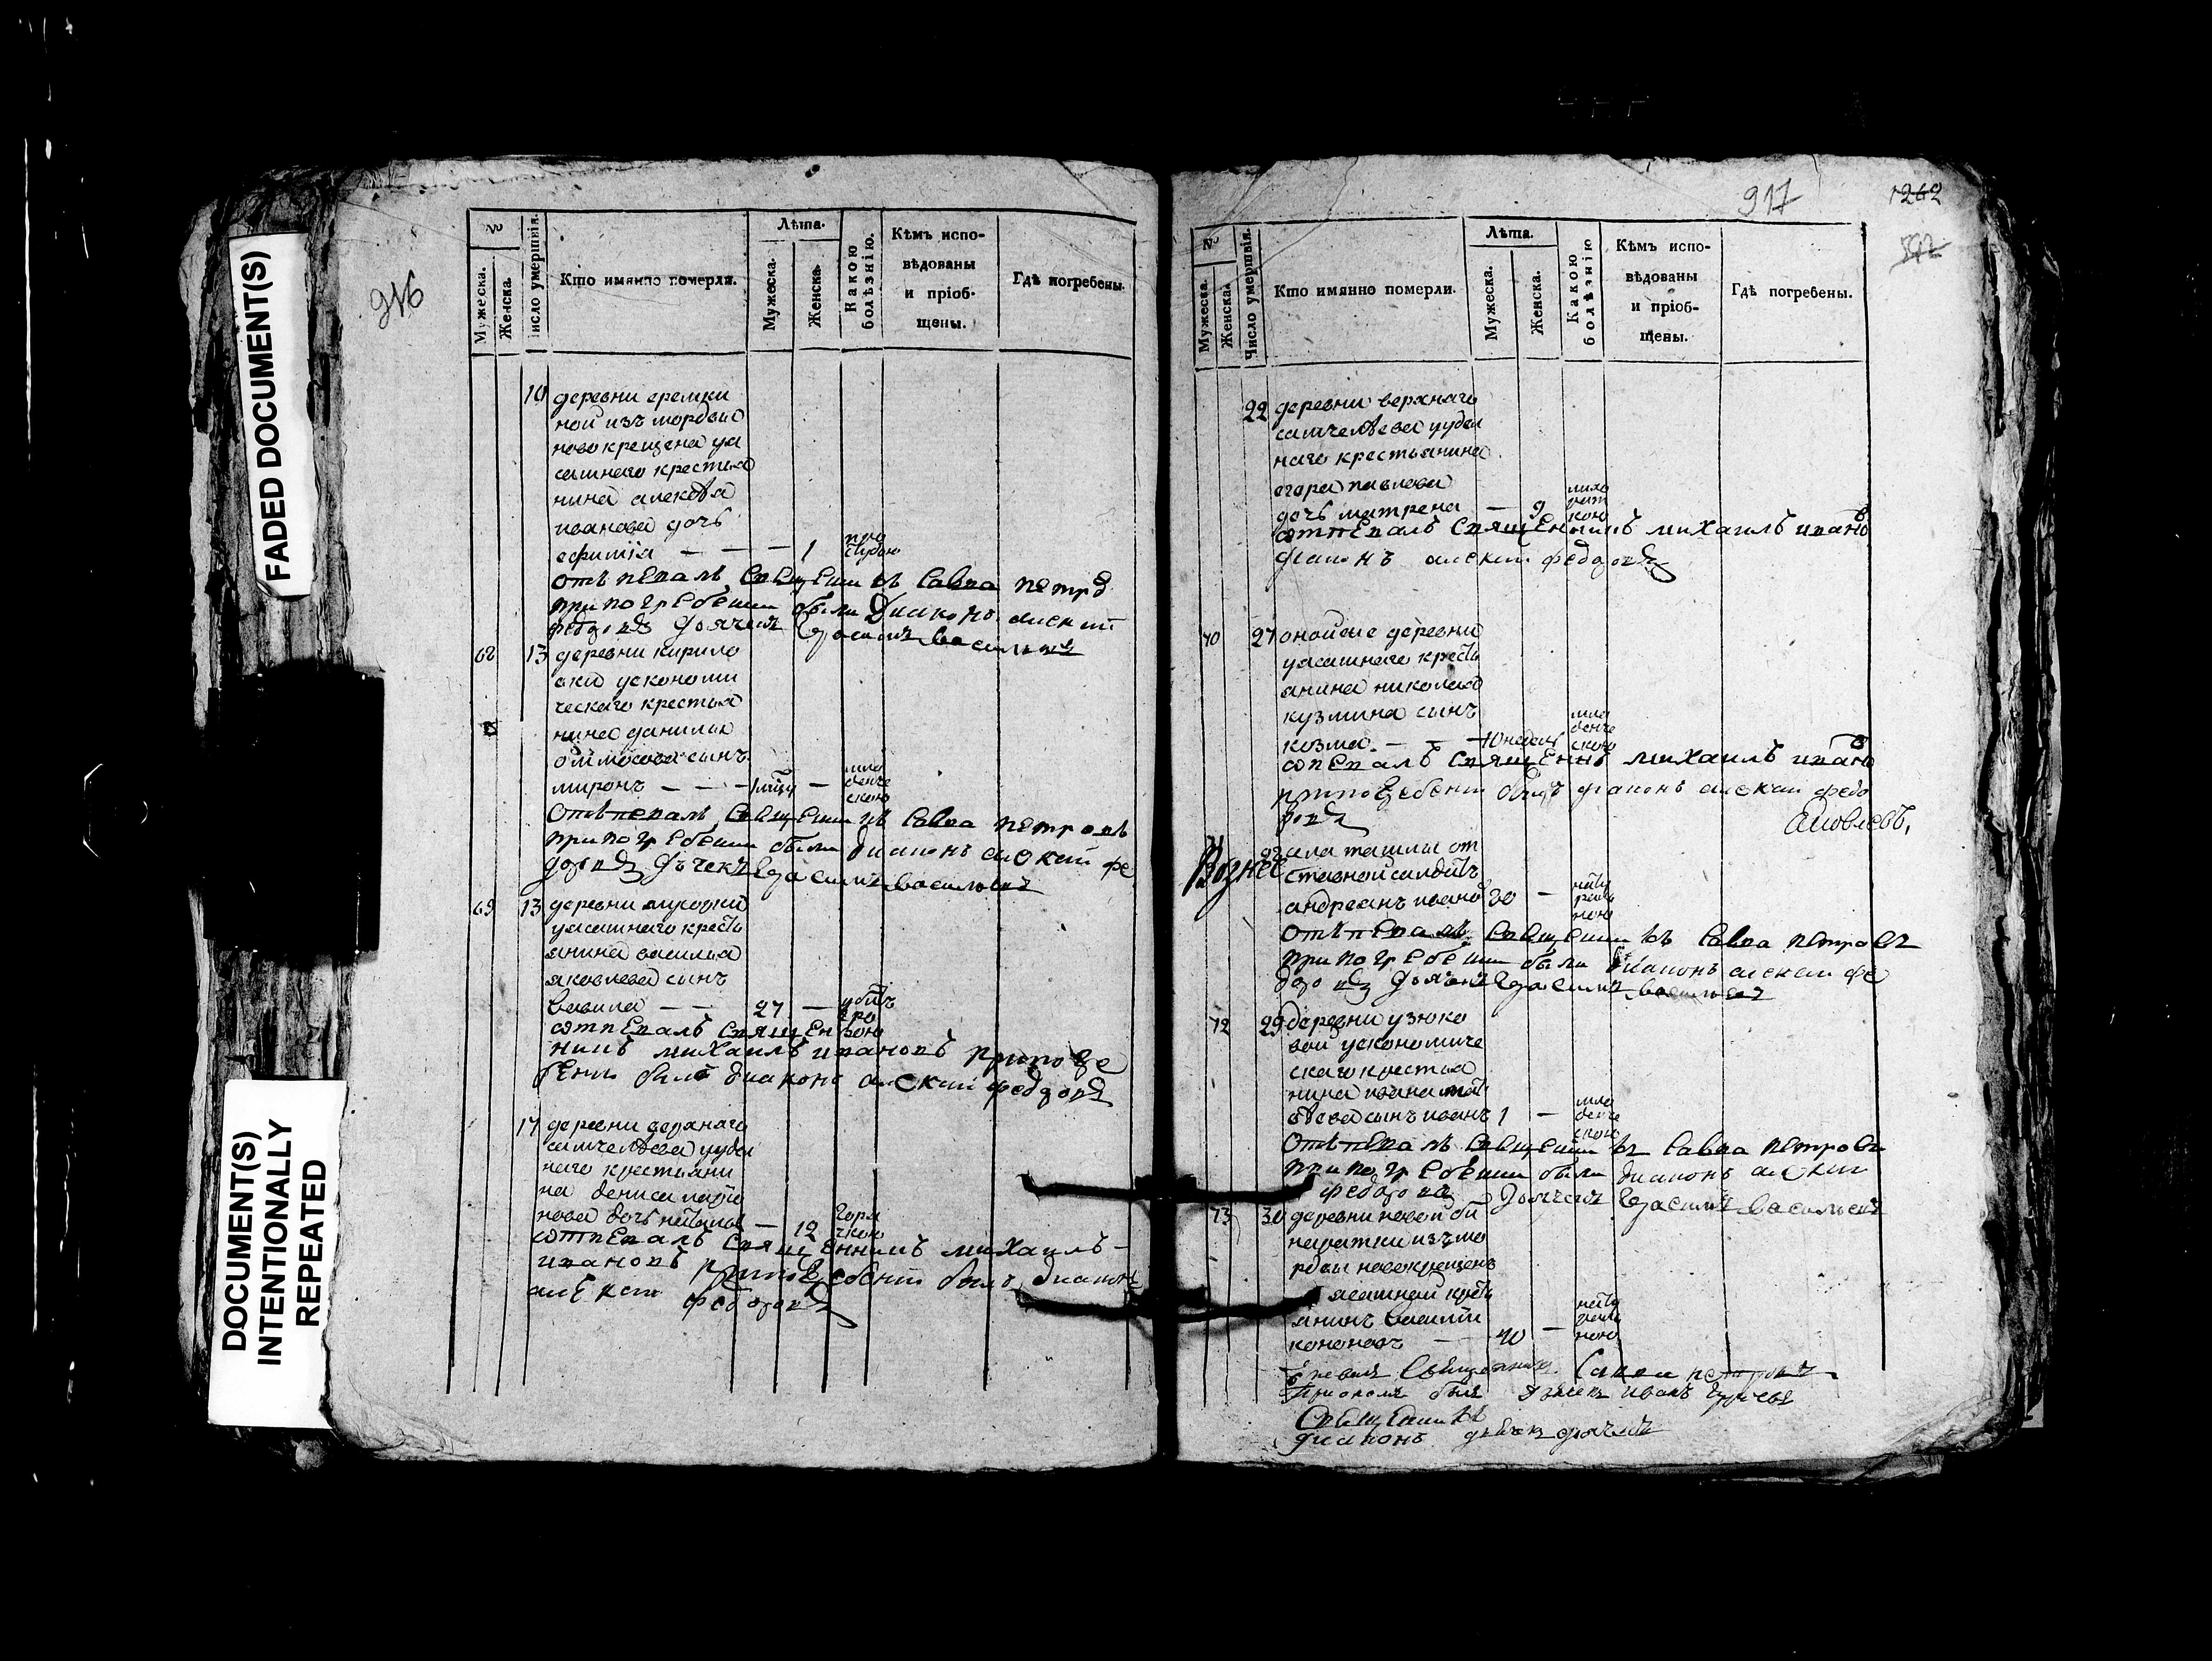 FADED DOCUMENT(S)
DOCUMENT(S)
INTENTIONALLY
REPEATED
916
№
Мужеска.
Женска.
Число умершiя.
Кто имянно померли.
Лѣта.
Мужеска.
Женска.
Какою болѣзнiю.
Кѣмъ испо-
вѣдованы
и прiоб-
щены.
Гдѣ погребены.
10 деревни еремки
ной изъ мордвы
новокрещена уа
сашнаго крестья
нина алексѣя
иванова дочь
ефимiя — — — 1
отъпевалъ Священникъ Савва петровъ
при погребении были Диаконъ алексий
федоровъ Дьячекъ Герасимъ васильевъ
68 13 деревни кирило
вки ускономи
ческаго крестья
нина данилы
сынъ
миронъ — — — 1 — мла
денче
скою
Отъпевалъ Священникъ Савва петровъ
при погребении были диаконъ алексий фе
доровъ Дьячекъ Герасимъ васильевъ
69 13 деревни мусорки
уасашнаго кресть
янина василья
яковлева сынъ
вавила — — 27 —
отпевалъ священ
никъ михаилъ ивановъ при погре
бении былъ диаконъ алексий федоровъ
17 деревни верхнаго
санчелѣева удел
наго крестьяни
на дениса
нова дочь — 12 горя
чкою
отпевалъ священникъ михаилъ
ивановъ при погребении былъ диаконъ
алексий федоровъ
917
1262
592
№
Мужеска.
Женска.
Число умершiя.
Кто имянно померли.
Лѣта.
Мужеска.
Женска.
Какою болѣзнiю
Кѣмъ испо-
вѣдованы
и прiоб-
щены.
Гдѣ погребены.
22 деревни верхнаго
санчелѣева удел
наго крестьянина
егора павлева
дочь матрена — 9 лихо
рат
кою
отпевалъ священникъ михаилъ ивановъ
диаконъ алексий федоровъ
70 27 онойже деревни
уасашнаго кресть
янина николая
кузмина сынъ
козма — — 10 недель мла
денче
скою
отпевалъ священникъ михаилъ ивановъ
при погребении былъ диаконъ алексий федо
ровъ
Яковлевъ,
Вознес
села ташлы от
ставной салдатъ
андреанъ ивановъ 30 — нату
раль
ною
Отъпевалъ Священникъ Савва петровъ
при погребении были диаконъ алексий фе
доровъ Дьячекъ Герасимъ васильевъ
72 29 деревни узюко
вой ускономиче
скаго крестья
нина ивана мат
вѣева сынъ иванъ 1 — мла
денче
скою
Отъпевалъ Священникъ Савва петровъ
при погребении были диаконъ алексий
федоровъ Дьячекъ Герасимъ васильевъ
73 30 деревни новой би
наратки изъ мо
рдвы новокрещенъ
ясашной кресть
янинъ василiй
кононовъ — 40 — нату
раль
ною
Отпевалъ Священникъ Савва петровъ
при ономъ былъ дьячекъ иванъ
Священникъ
диаконъ дьячекъ дьячекъ